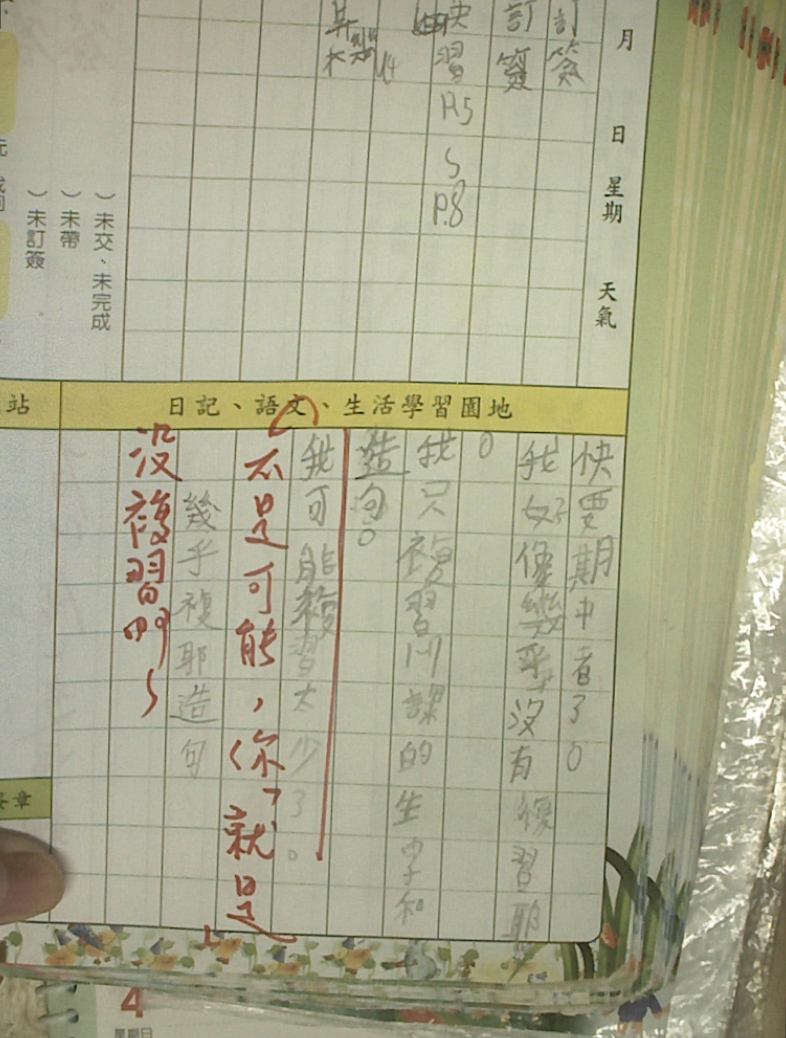 月　日　星期　天氣
訂簽
訂簽
習P.5
〜P.8
）未交、未完成
）未帶
）未訂簽
日記、語文、生活學習園地
站
快要期中考了。
我好像幾乎沒有複習耶
。
我只複習川課的生字和
造句。
我可能複習太少了。
不是可能，你「就是」
幾乎複耶造句
沒複習啊~
章
4
星期日